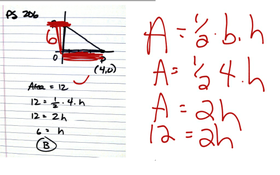 PS 206
6
O P
(4,0)
Area = 12
12 = ½ · 4 · h
12 = 2h
6 = h
B
A = ½ · b · h
A = ½ 4 · h
A = 2h
12 = 2h